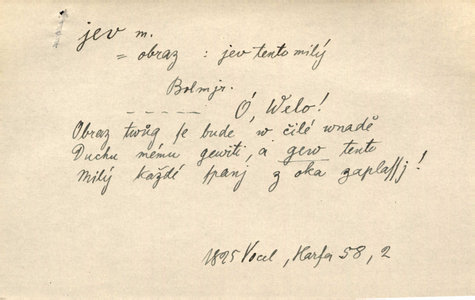 jev m.
= obraz : jev tento milý
Bolmjr.
– – – – – Ó, Welo!
Obraz twůg se bude w čilé wnadě
Duchu mému gewiti, a gew tento
Milý každé spanj z oka zaplassj!
1825 Vocel, Harfa 58, 2